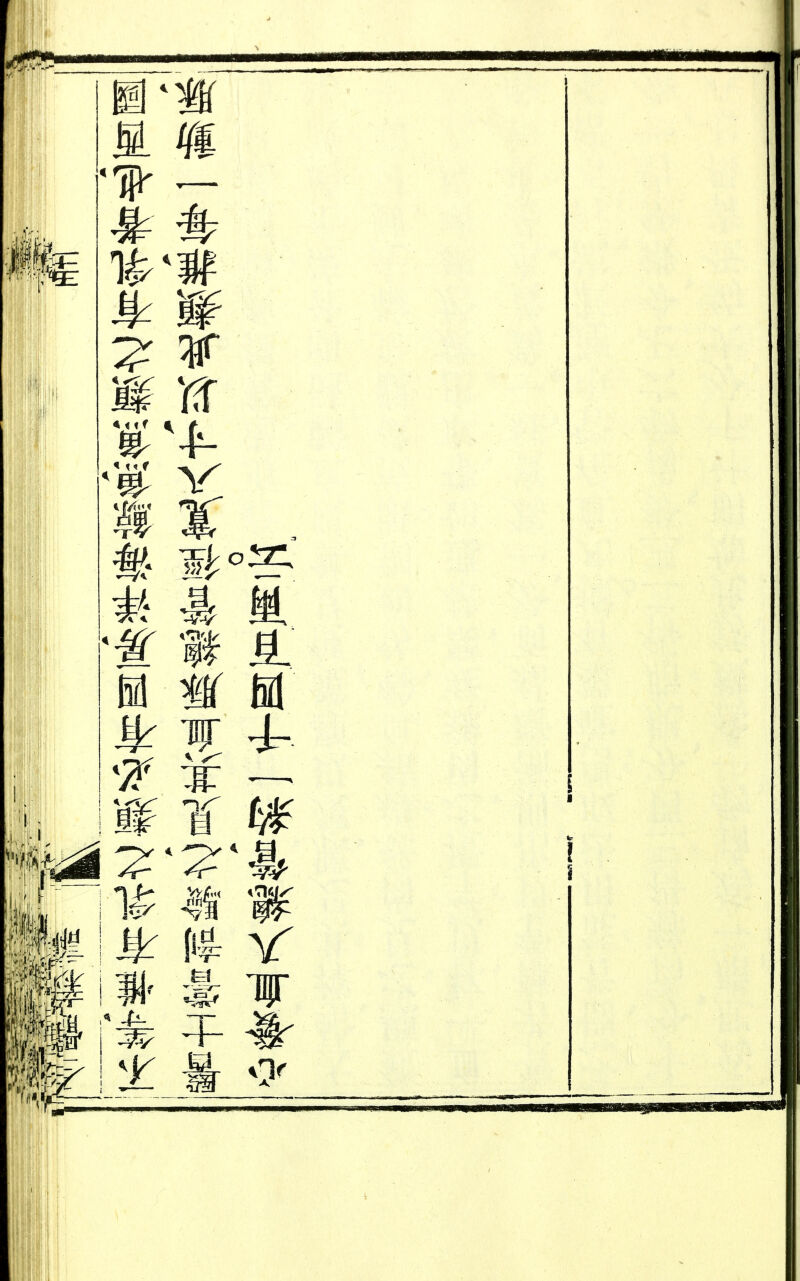 不等、惟有乳之類必有四房、洋海鯨魚、魚類之有乳者也、西國
醫士嘗剖驗之、見其血脉總管徑寬八寸、以此類推、每一動脉、
心發血入總管、約一千四百兩云。
全體新論